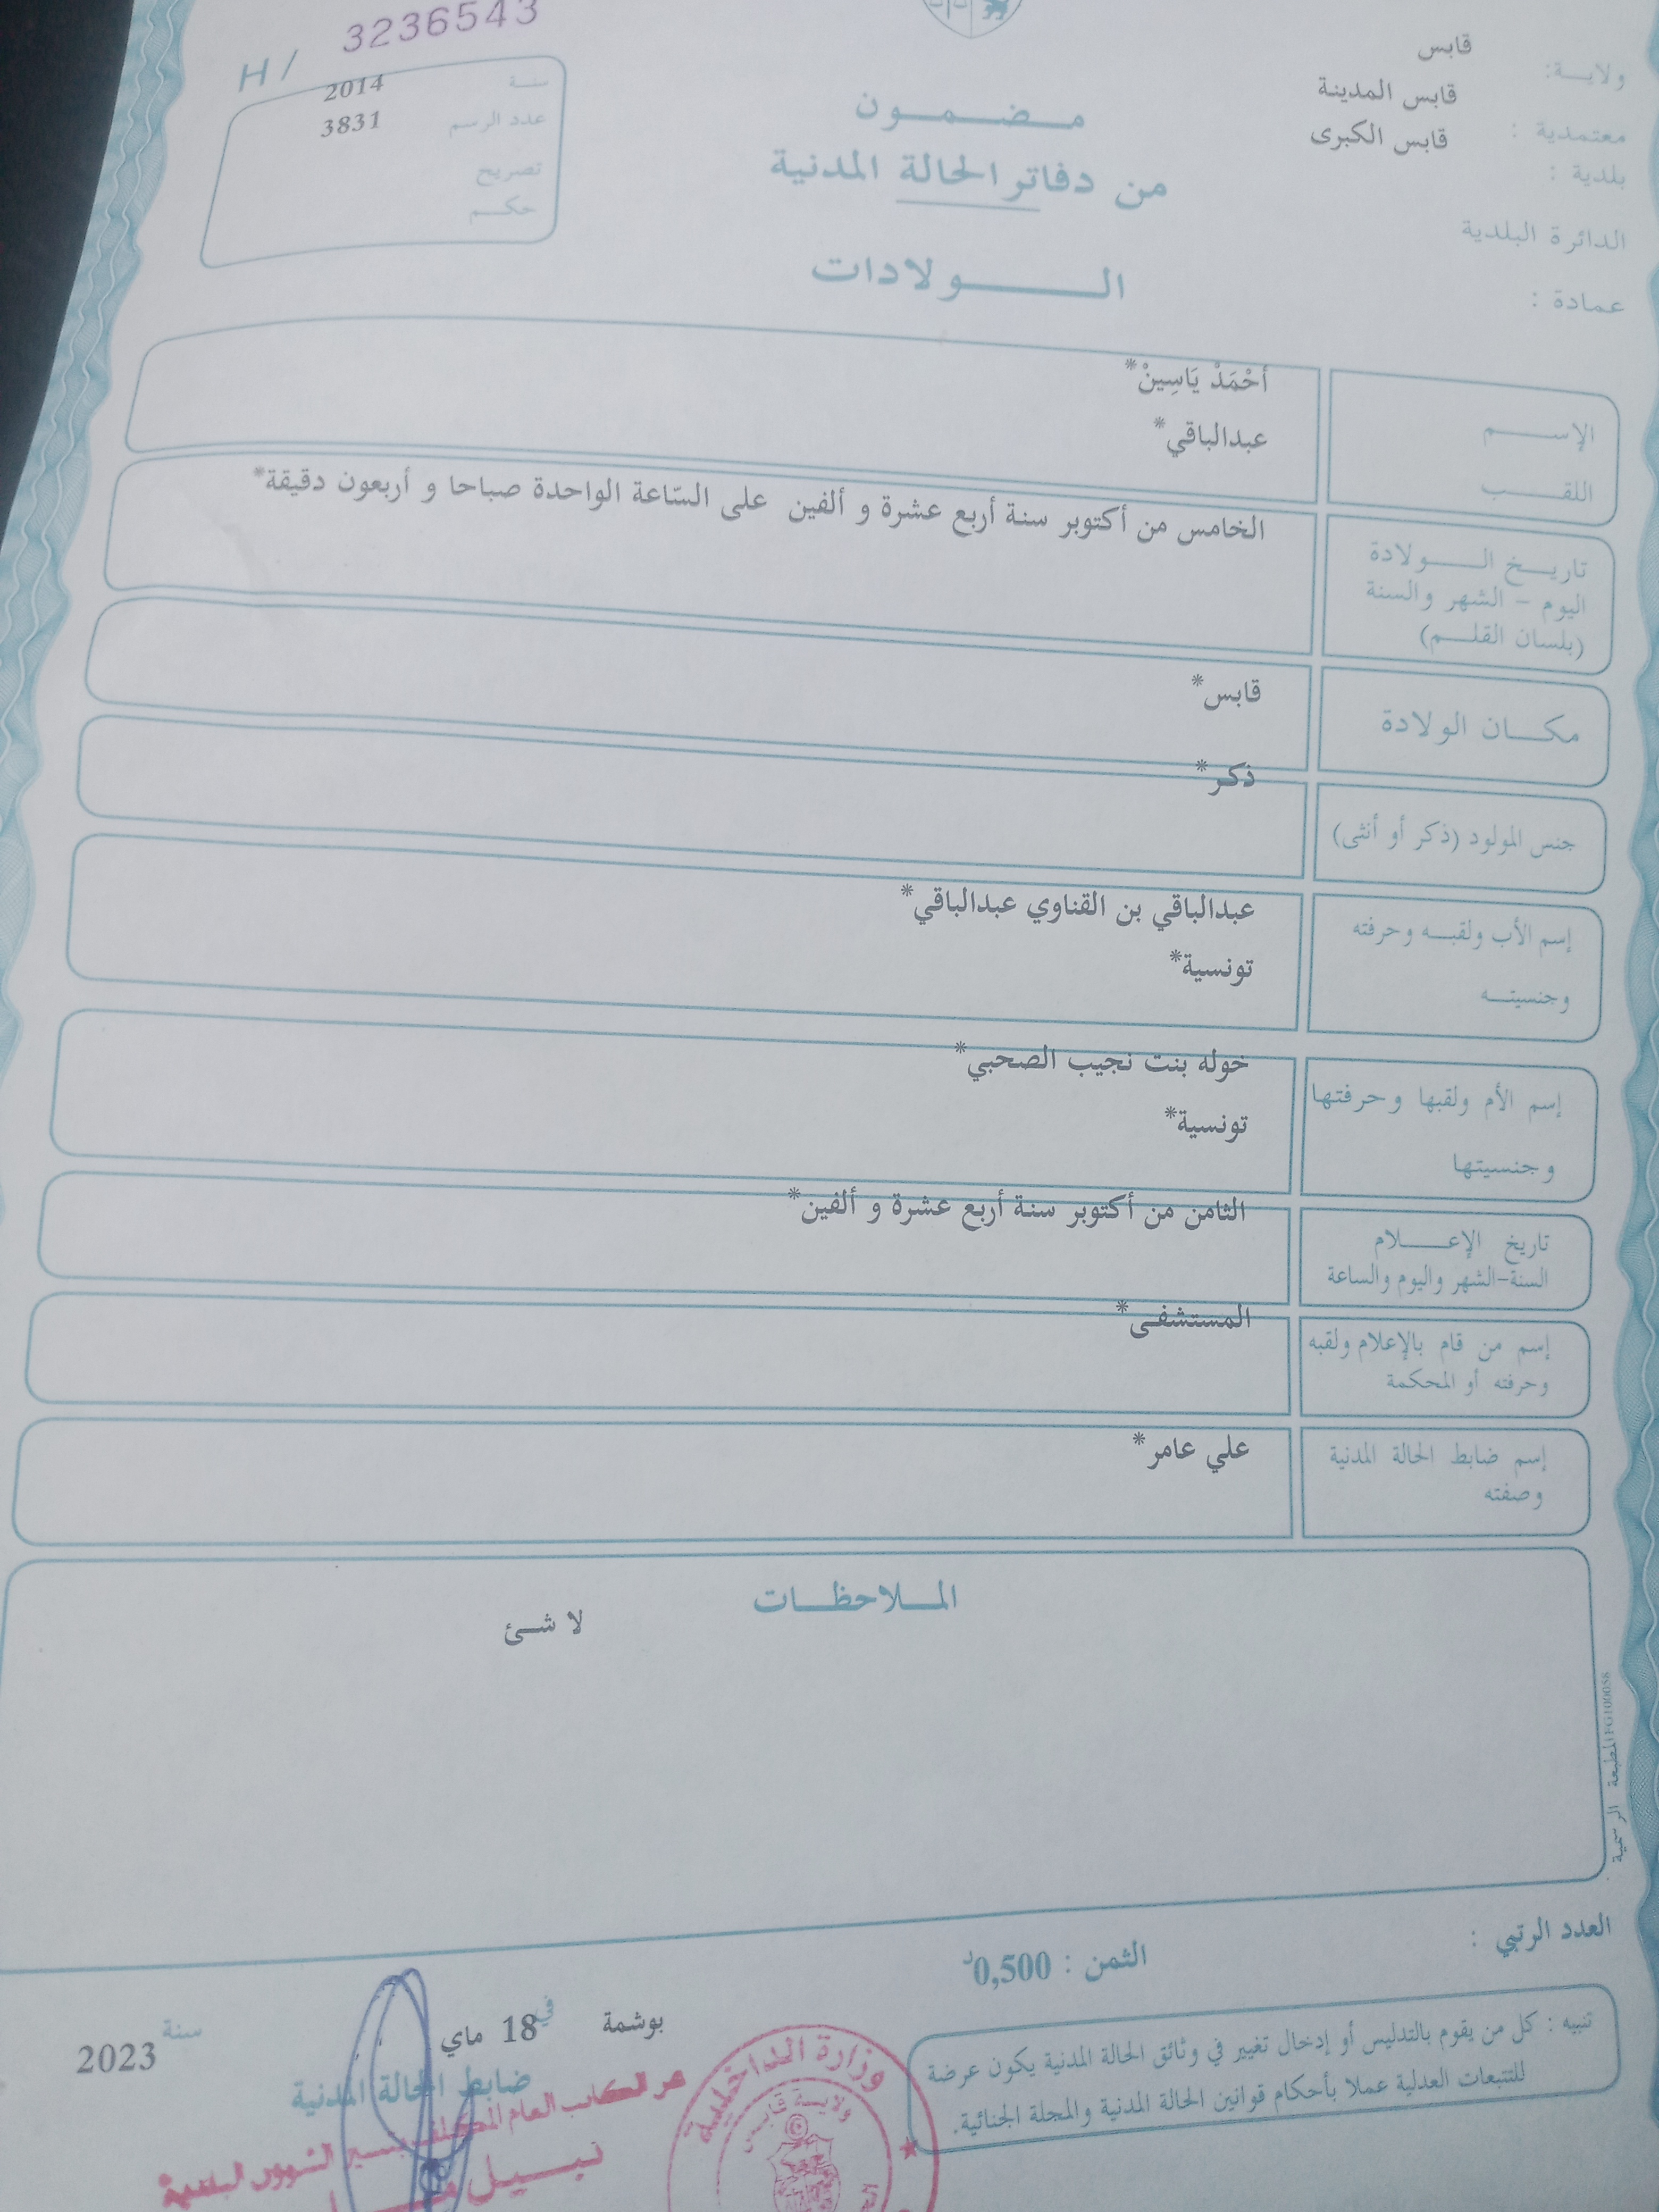 H / 3236543
سنة 2014
عدد الرسم 3831
تصريح
حكم
ولاية: قابس
قابس المدينة
معتمدية :
قابس الكبرى
بلدية :
الدائرة البلدية
عمادة :
مضمون
من دفاتر الحالة المدنية
الولادات
الإسم
أحْمَدْ يَاسِينْ*
اللقب
عبدالباقي*
تاريخ الولادة
اليوم - الشهر والسنة
(بلسان القلم)
الخامس من أكتوبر سنة أربع عشرة و ألفين على السّاعة الواحدة صباحا و أربعون دقيقة*
مكان الولادة
قابس*
جنس المولود (ذكر أو أنثى)
ذكر*
إسم الأب ولقبه وحرفته
وجنسيته
عبدالباقي بن القناوي عبدالباقي*
تونسية*
إسم الأم ولقبها وحرفتها
وجنسيتها
خوله بنت نجيب الصحبي*
تونسية*
تاريخ الإعلام
السنة-الشهر واليوم والساعة
الثامن من أكتوبر سنة أربع عشرة و ألفين*
إسم من قام بالإعلام ولقبه
وحرفته أو المحكمة
المستشفى*
إسم ضابط الحالة المدنية
وصفته
علي عامر*
الملاحظات
لا شئ
المطبعة الرسمية
العدد الرتبي :
الثمن : 0,500د
تنبيه : كل من يقوم بالتدليس أو إدخال تغيير في وثائق الحالة المدنية يكون عرضة
للتتبعات العدلية عملا بأحكام قوانين الحالة المدنية والمجلة الجنائية.
بوشمة في 18 ماي سنة 2023
ضابط الحالة المدنية
الكاتب العام المكلف بتسيير الشؤون البلدية
نبيل
وزارة الداخلية
ولاية قابس